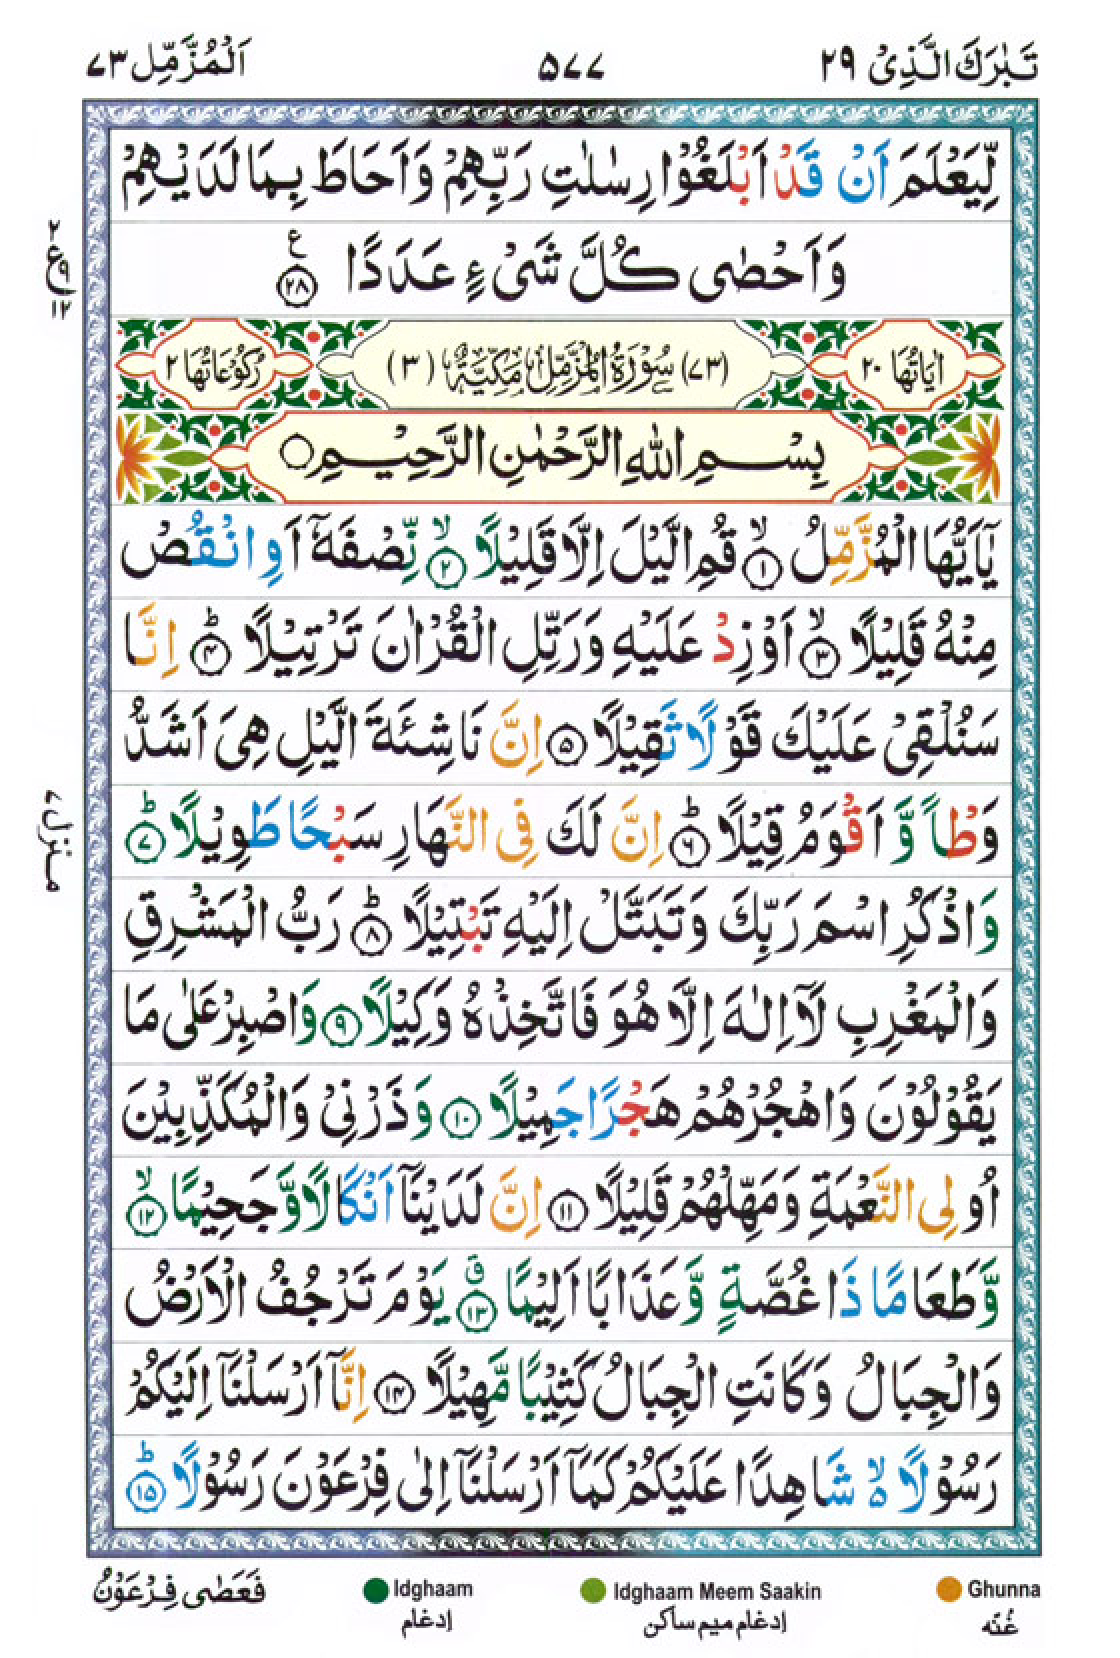 تَبٰرَكَ الَّذِیْ ۲۹
۵۷۷
اَلْمُزَّمِّل ۷۳
لِّیَعْلَمَ اَنْ قَدْ اَبْلَغُوْا رِسٰلٰتِ رَبِّهِمْ وَاَحَاطَ بِمَا لَدَیْهِمْ
وَاَحْصٰی كُلَّ شَیْءٍ عَدَدًا ۲۸ ع
۲ ع ۹ ۱۲
اٰیَاتُهَا ۲۰
(۷۳) سُوْرَةُ الْمُزَّمِّلِ مَكِّیَّةٌ (۳)
رُكُوْعَاتُهَا ۲
بِسْمِ اللهِ الرَّحْمٰنِ الرَّحِیْمِ
یٰۤاَیُّهَا الْمُزَّمِّلُ ۱ۙ قُمِ الَّیْلَ اِلَّا قَلِیْلًا ۲ۙ نِّصْفَهٗۤ اَوِ انْقُصْ
مِنْهُ قَلِیْلًا ۳ۙ اَوْ زِدْ عَلَیْهِ وَرَتِّلِ الْقُرْاٰنَ تَرْتِیْلًا ۴ؕ اِنَّا
سَنُلْقِیْ عَلَیْكَ قَوْلًا ثَقِیْلًا ۵ اِنَّ نَاشِئَةَ الَّیْلِ هِیَ اَشَدُّ
وَطْاً وَّ اَقْوَمُ قِیْلًا ۶ؕ اِنَّ لَكَ فِی النَّهَارِ سَبْحًا طَوِیْلًا ۷ؕ
وَاذْكُرِ اسْمَ رَبِّكَ وَتَبَتَّلْ اِلَیْهِ تَبْتِیْلًا ۸ؕ رَبُّ الْمَشْرِقِ
وَالْمَغْرِبِ لَاۤ اِلٰهَ اِلَّا هُوَ فَاتَّخِذْهُ وَكِیْلًا ۹ وَاصْبِرْ عَلٰی مَا
یَقُوْلُوْنَ وَاهْجُرْهُمْ هَجْرًا جَمِیْلًا ۱۰ وَذَرْنِیْ وَالْمُكَذِّبِیْنَ
اُولِی النَّعْمَةِ وَمَهِّلْهُمْ قَلِیْلًا ۱۱ اِنَّ لَدَیْنَاۤ اَنْكَالًا وَّجَحِیْمًا ۱۲ۙ
وَّطَعَامًا ذَا غُصَّةٍ وَّعَذَابًا اَلِیْمًا ۱۳ق یَوْمَ تَرْجُفُ الْاَرْضُ
وَالْجِبَالُ وَكَانَتِ الْجِبَالُ كَثِیْبًا مَّهِیْلًا ۱۴ اِنَّاۤ اَرْسَلْنَاۤ اِلَیْكُمْ
رَسُوْلًا ۵ۙ شَاهِدًا عَلَیْكُمْ كَمَاۤ اَرْسَلْنَاۤ اِلٰی فِرْعَوْنَ رَسُوْلًا ۱۵ؕ
منزل ۷
Ghunna
غُنّه
Idghaam Meem Saakin
إدغام میم ساکن
Idghaam
إدغام
فَعَصٰی فِرْعَوْنُ